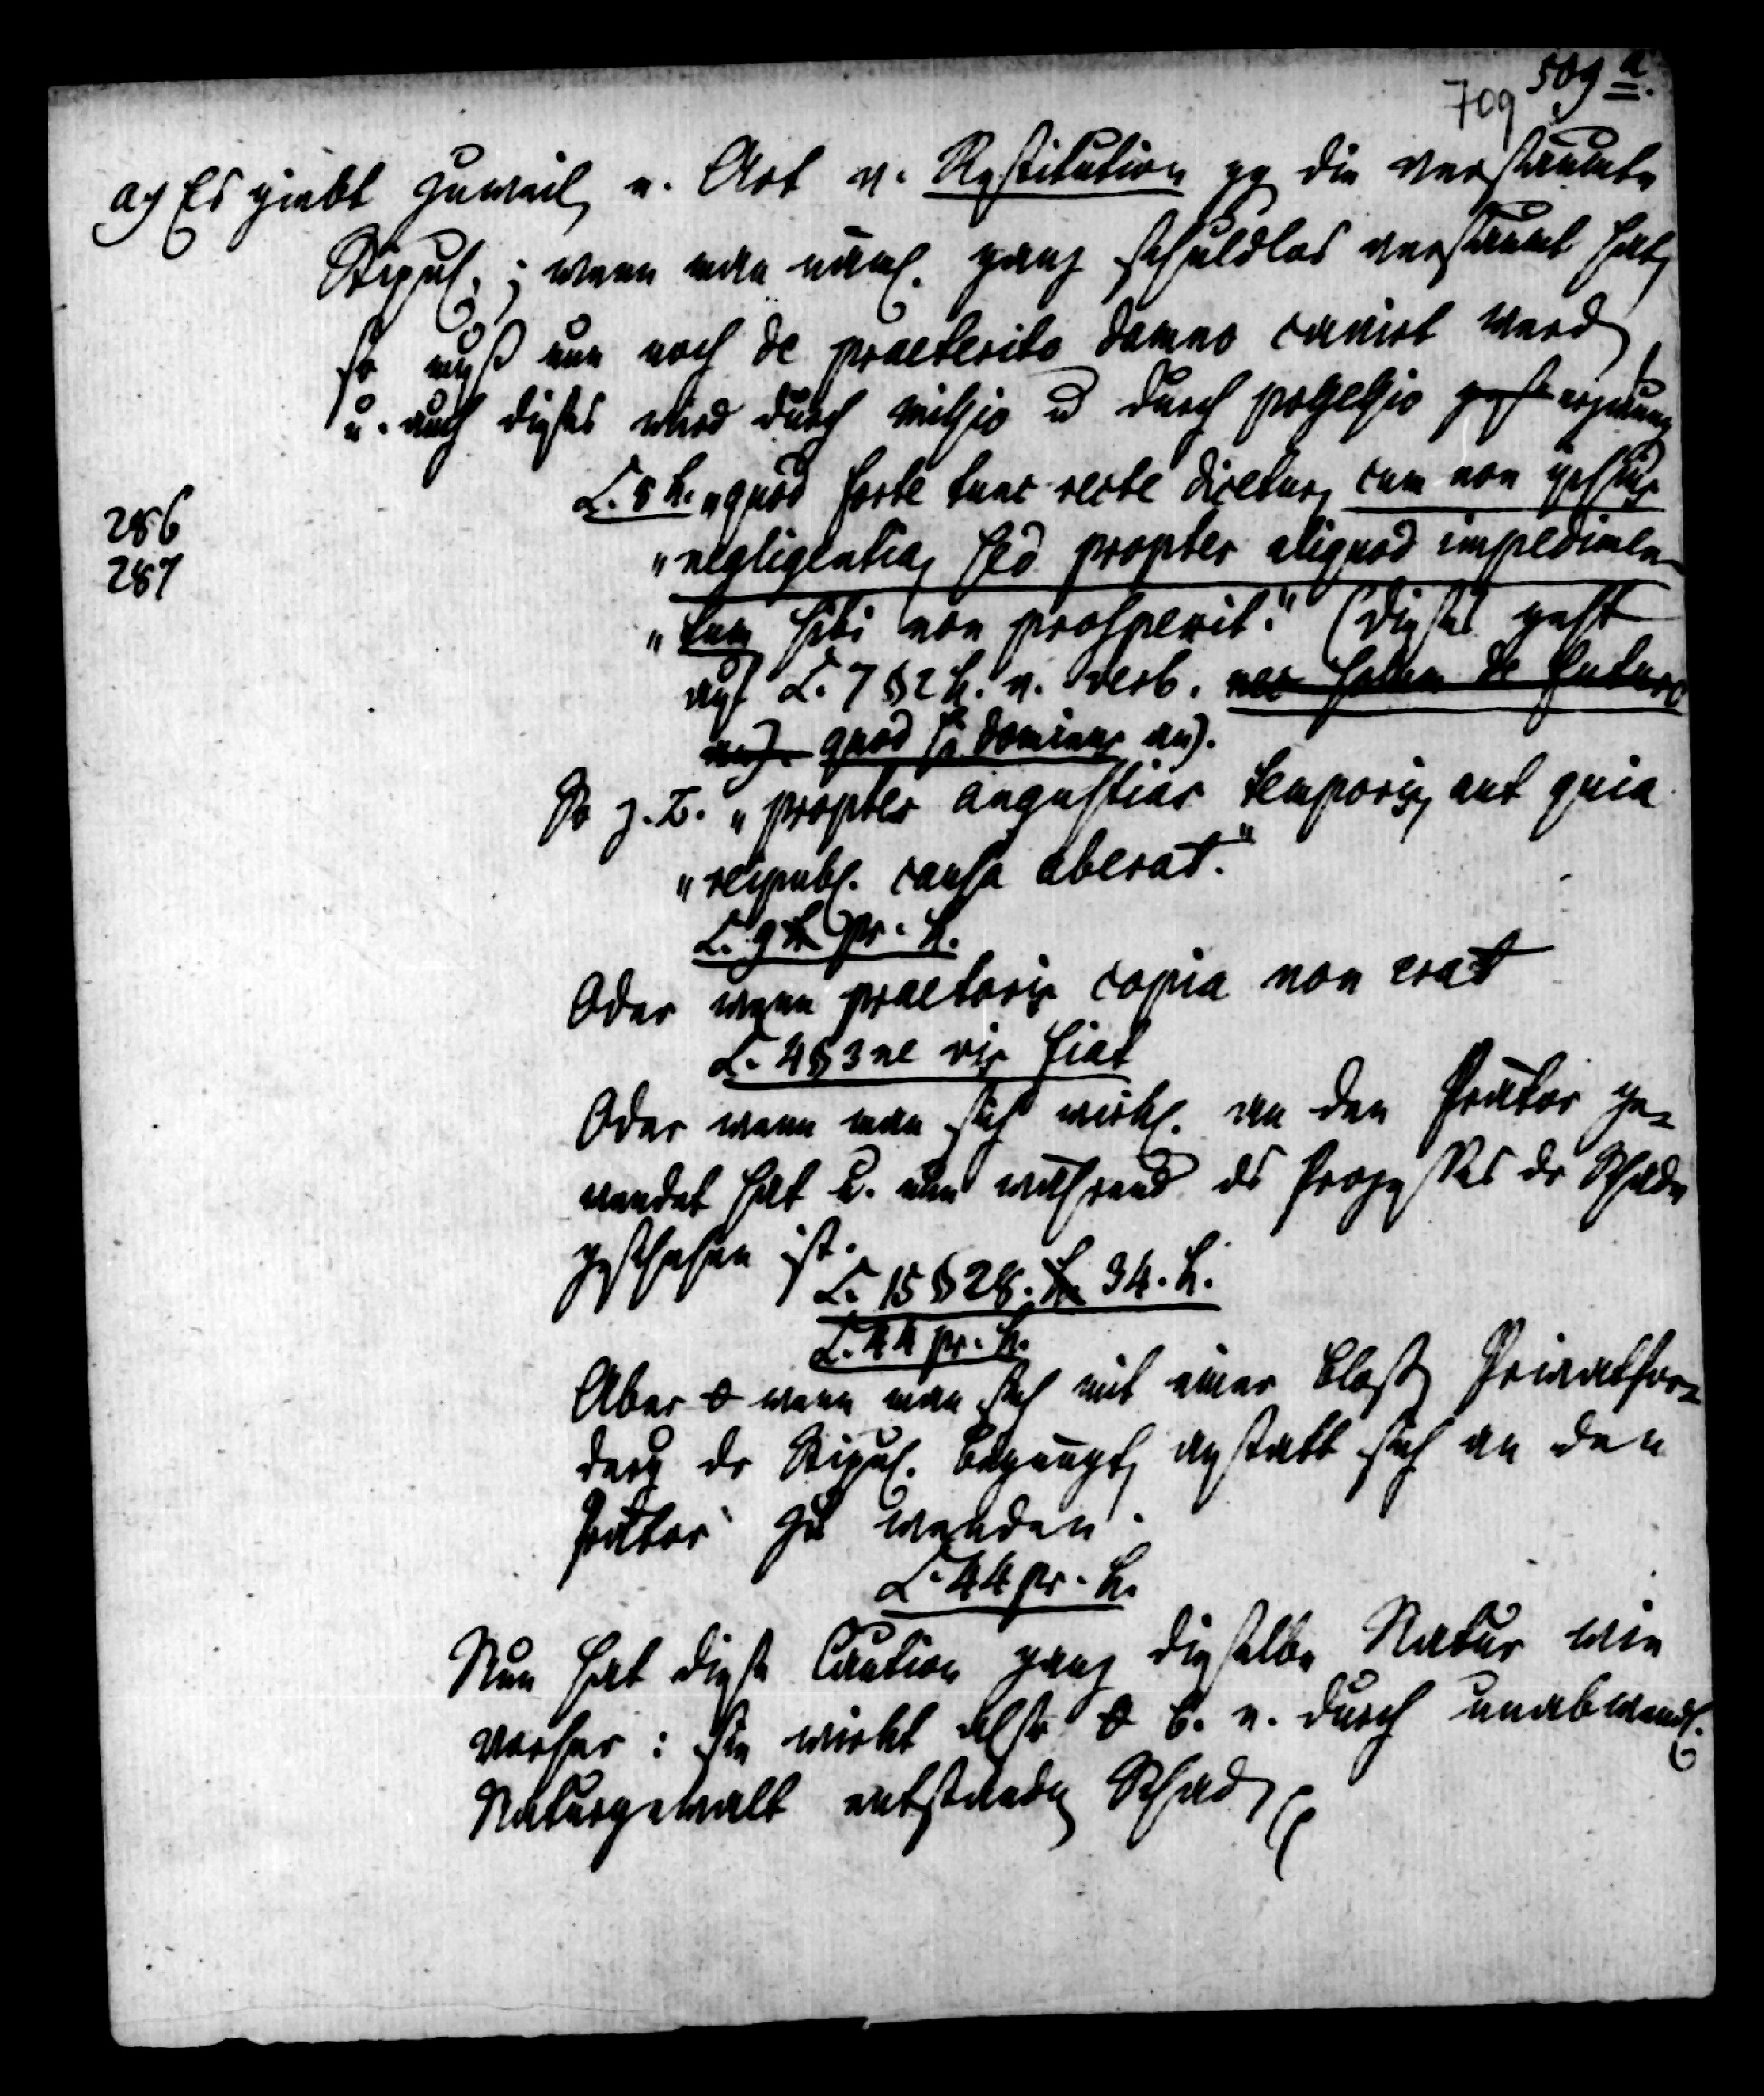 509 a.
709
a) Es giebt zuweil. e. Art v. Restitution gg die versäumte
Stipul.; wenn man näml. ganz schuldlos versäumt hat,
so muß nun noch de praeterito damno cavirt werd
u. auch dieses wird durch missio u durch possessio erzwung
L. 8 h. „quod forte tunc recte dicetur, cum non ipsius
286
„negligentia, sed propter aliquod impedimen-
287
„tum sibi non prospexit." (dieses geht
auf L. 7 § 2 h. v. verb. nec solum de futuro
an). quod si dominus an).
So z. B. „propter angustias temporis, aut quia
„reipubl. causa aberat."
L. 9 pr. h.
Oder wenn praetoris copia non erat
L. 4 § 3 ne vis fiat
Oder wenn man sich wirkl. an den Prätor ge-
wendet hat u. nun während ds Prozesses dr Schade
geschehen ist.
L. 15 § 28. 34. h.
L. 44 pr. h.
Aber o wenn man sich mit einer bloß Privatfor-
derg dr Stipul. begnügt, anstatt sich an den
Prätor zu wenden.
L. 44 pr. h.
Nun hat diese Caution ganz dieselbe Natur wie
vorher: sie wirkt also o b. e. durch unabwendl.
Naturgewalt entstandn Schad